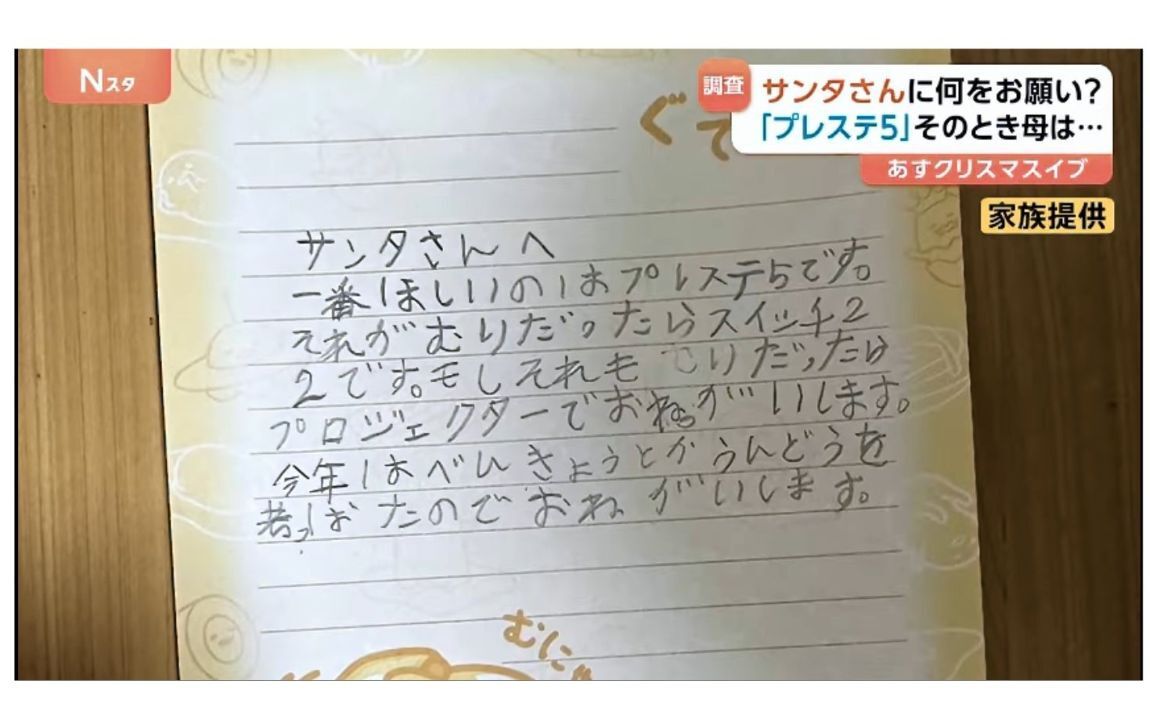 Nスタ
調査
サンタさんに何をお願い?
「プレステ5」そのとき母は…
あすクリスマスイブ
家族提供
ぐで
サンタさんへ
一番ほしいのはプレステ5です。
それがむりだったらスイッチ2
2です。もしそれもむりだったら
プロジェクターでおねがいします。
今年はべんきょうとかうんどうを
がんばったのでおねがいします。
むにゃ